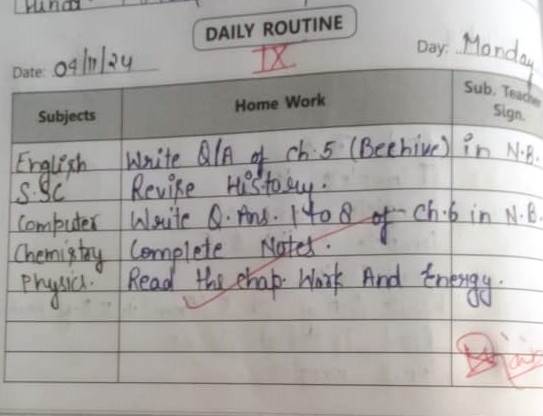 Hindi
DAILY ROUTINE
IX
Date: 04/11/24 Day: Monday
Subjects Home Work Sub. Teacher Sign.
English Write Q/A of ch.5 (Beehive) in N.B.
S.SC Revise History.
Computer Write Q. Ans. 1 to 8 of Ch.6 in N.B.
Chemistry Complete Notes.
Physics. Read the chap. Work And Energy.